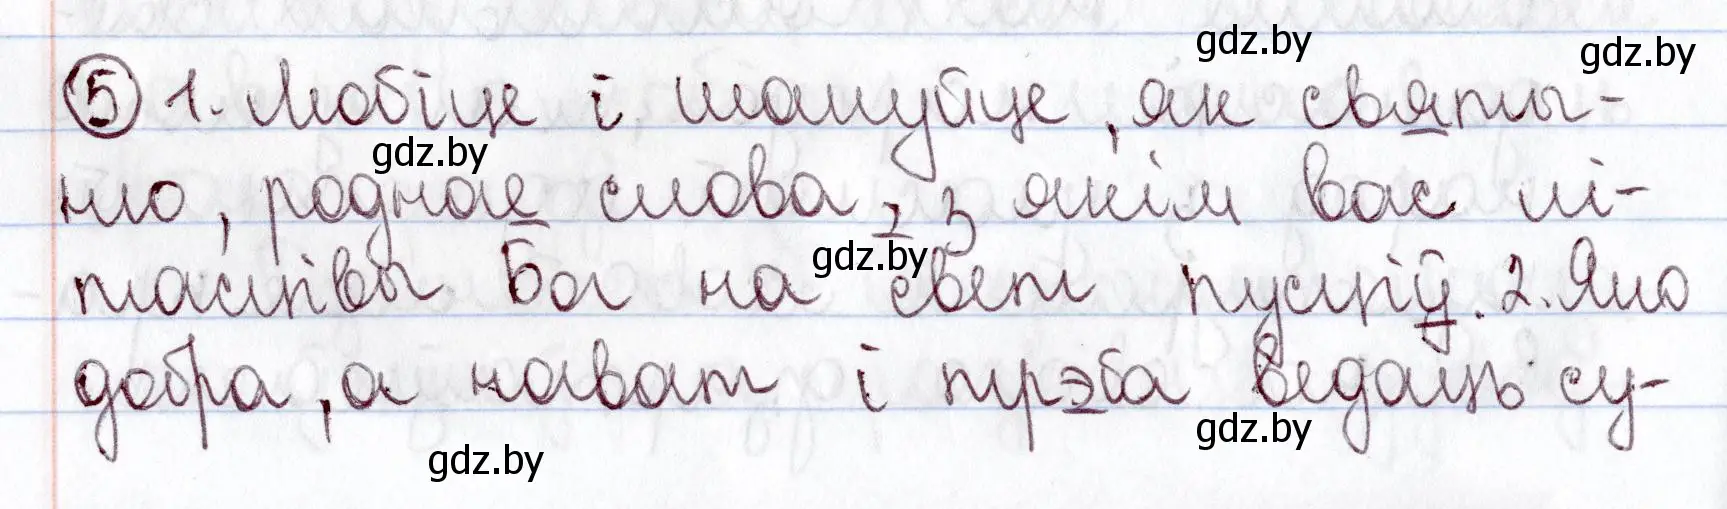 gdz.by
gdz.by
5 1. Любіце і шануйце, як святы-
gdz.by
ню, роднае слова, з якім вас лі-
gdz.by
таслівы Бог на свет пусціў. 2. Яно
добра, а нават і трэба ведаць су-
gdz.by
gdz.by